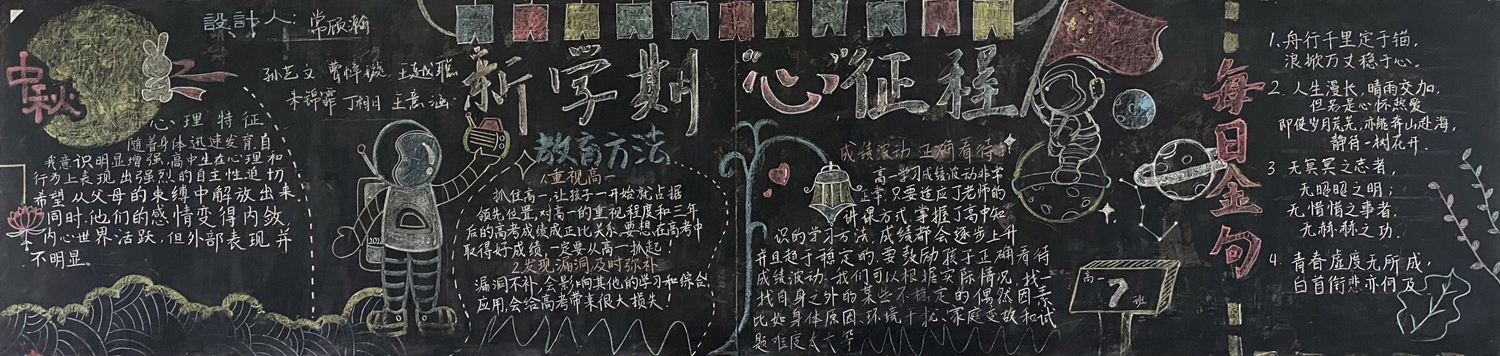 中秋
設計人:
孙艺文
朱锦霏
心理特征
随着身体迅速发育,自
我意识明显增强,高中生在心理和
行为上表现出强烈的自主性,迫切
希望从父母的束缚中解放出来.
同时,他们的感情变得内敛
内心世界活跃,但外部表现并
不明显。
新学期 心征程
教育方法
1.重视高一
抓住高一,让孩子一开始就占据
领先位置,对高一的重视程度和三年
后的高考成绩成正比关系,要想在高考中
取得好成绩,一定要从高一抓起!
2.发现漏洞及时弥补
漏洞不补,会影响其他的学习和综合
应用,会给高考带来很大损失!
成绩波动,正确看待
高一学习成绩波动非常
正常,只要适应了老师的
讲课方式,掌握了高中知
识的学习方法,成绩都会逐步上升
并且趋于稳定的,要鼓励孩子正确看待
成绩波动.我们可以根据实际情况,找一
找自身之外的某些不稳定的偶然因素
比如身体原因,环境干扰、家庭变故和试
题难度太大等
高一7班
每日金句
1.舟行千里定于锚,
浪掀万丈稳于心。
2.人生漫长,晴雨交加,
但若是心怀热爱
即使岁月荒芜,亦能奔山赴海,
静待一树花开.
3 无冥冥之志者,
无昭昭之明;
无惛惛之事者.
无赫赫之功.
4.青春虚度无所成,
白首衔悲亦何及